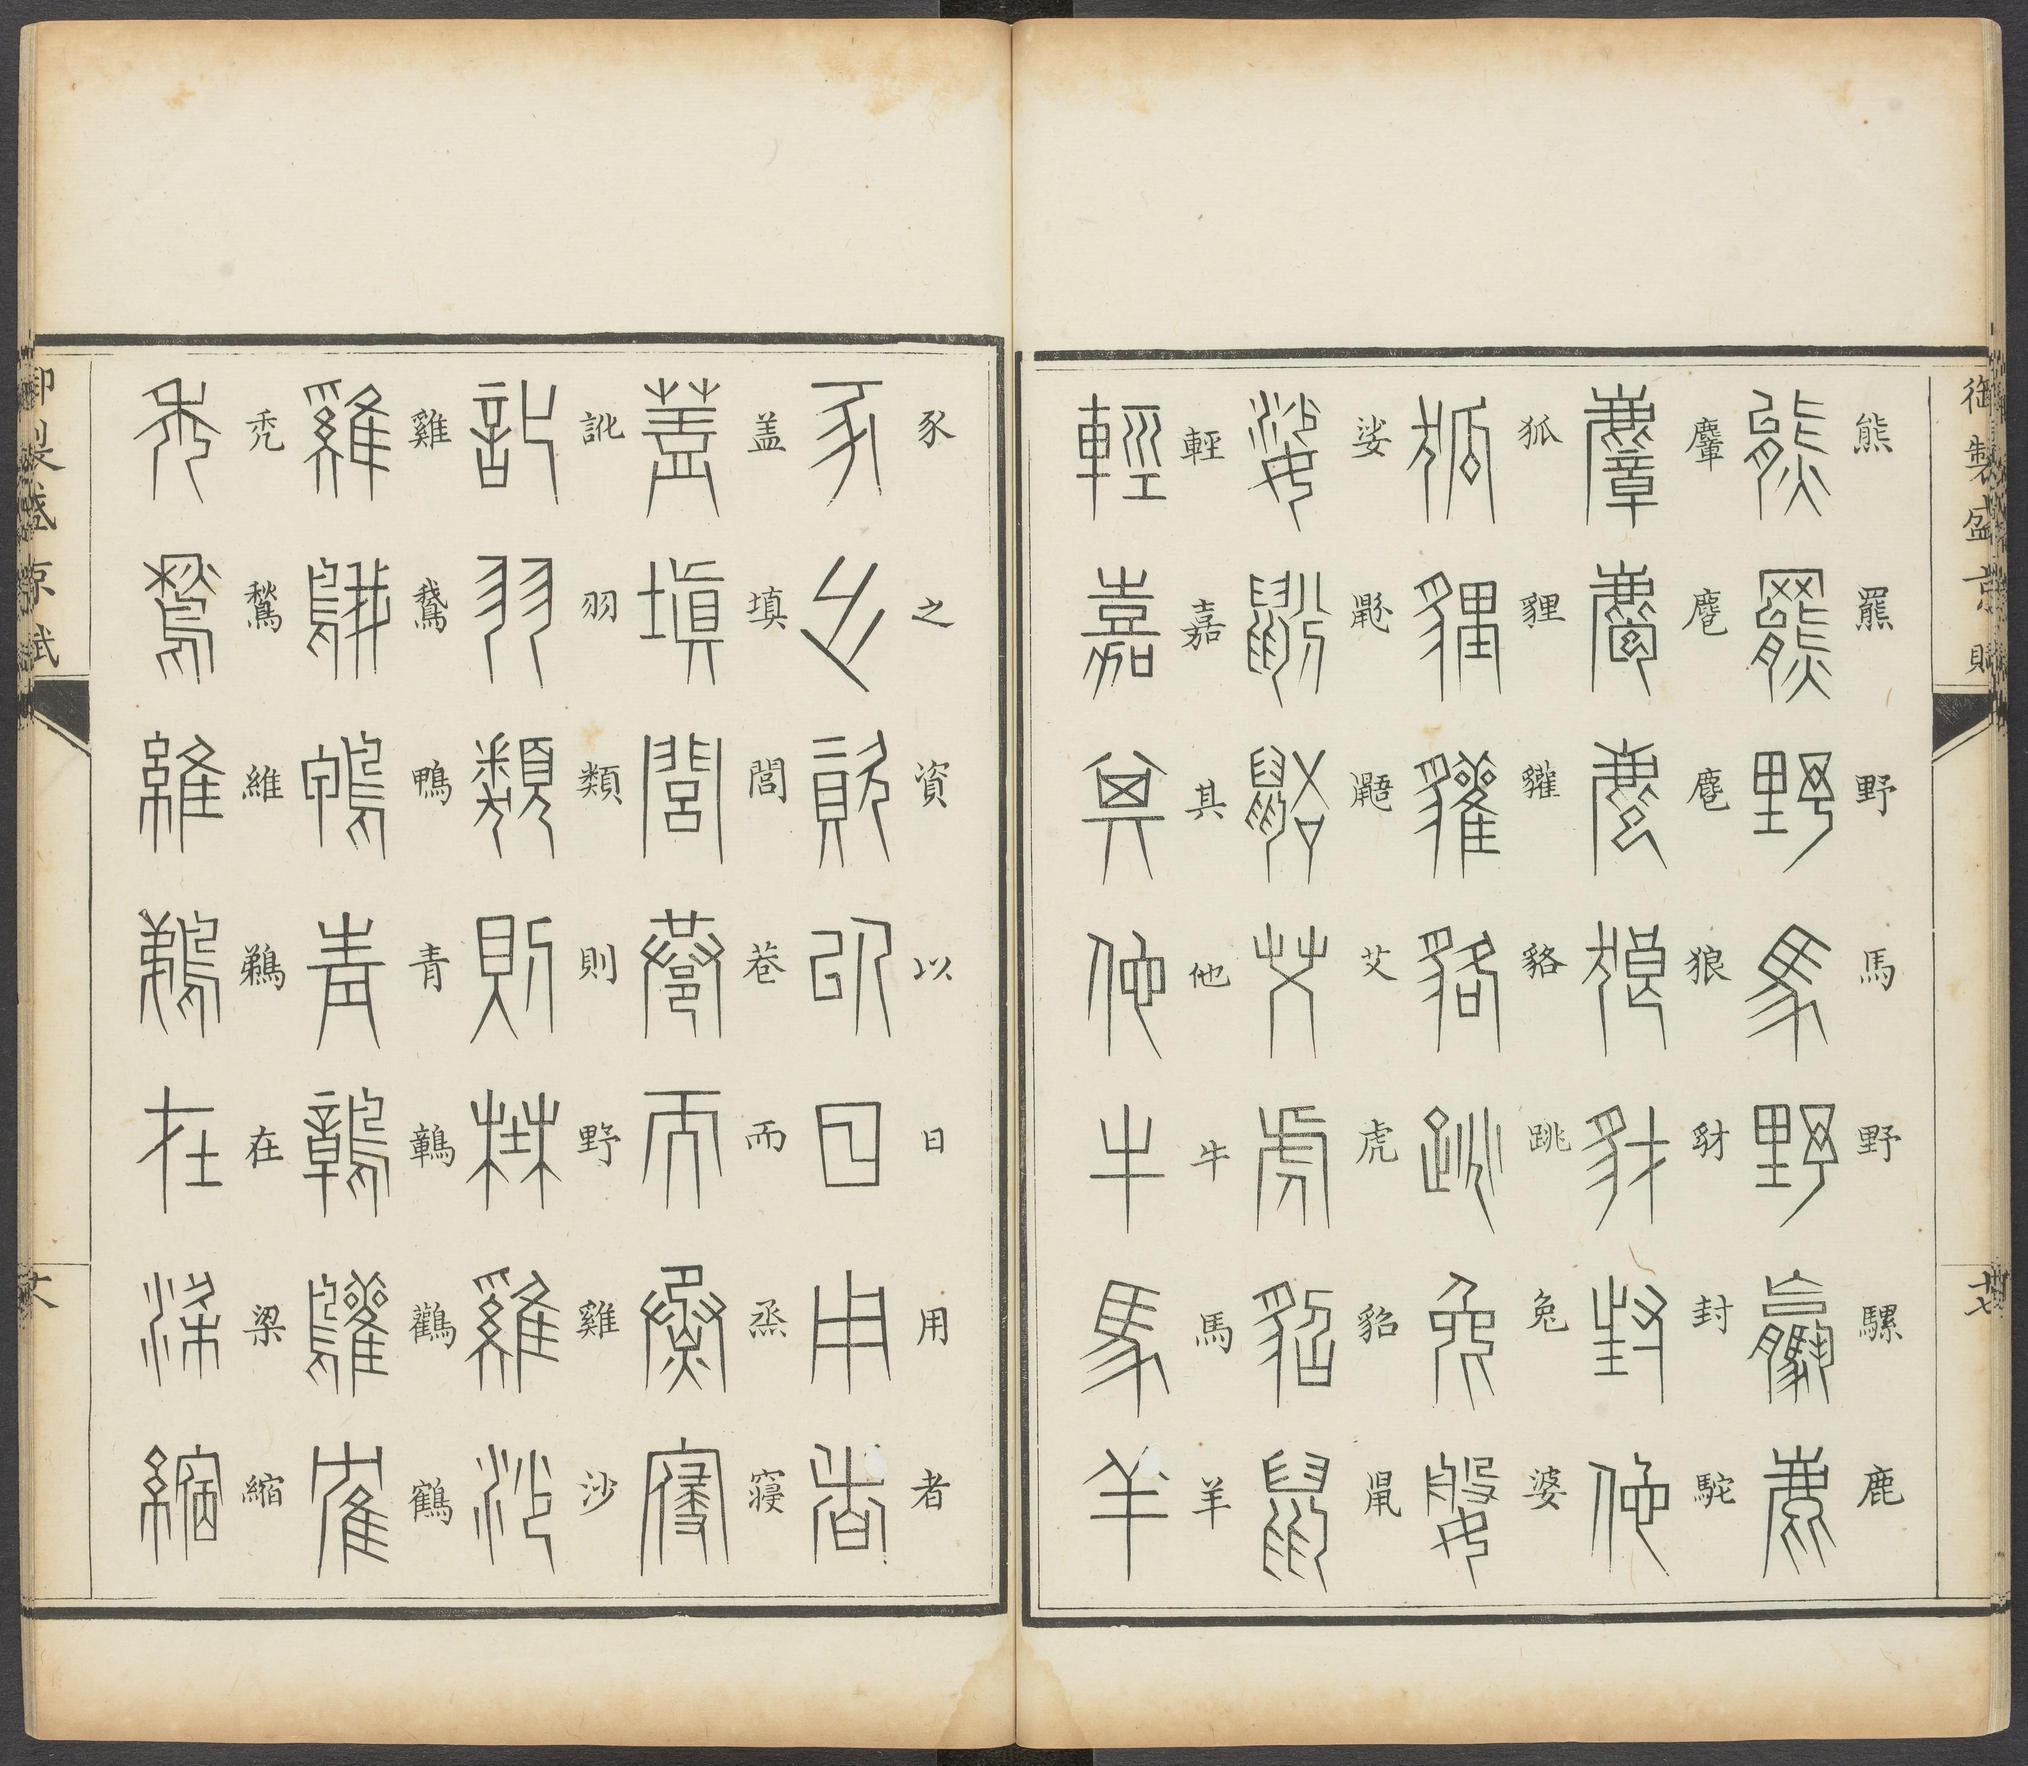 御製盛京賦
十七
熊羆野馬野騾鹿
麞麅麅狼豺封駝
狐貍貛貉跳兔婆
娑鼢鼯艾虎貂鼠
輕嘉其他牛馬羊
豕之資以日用者
盖填閭巷而烝寝
訛羽類則野雞沙
雞鵞鴨青鸛鶴
秃鶖維鵜在梁縮
御製盛京賦
十八